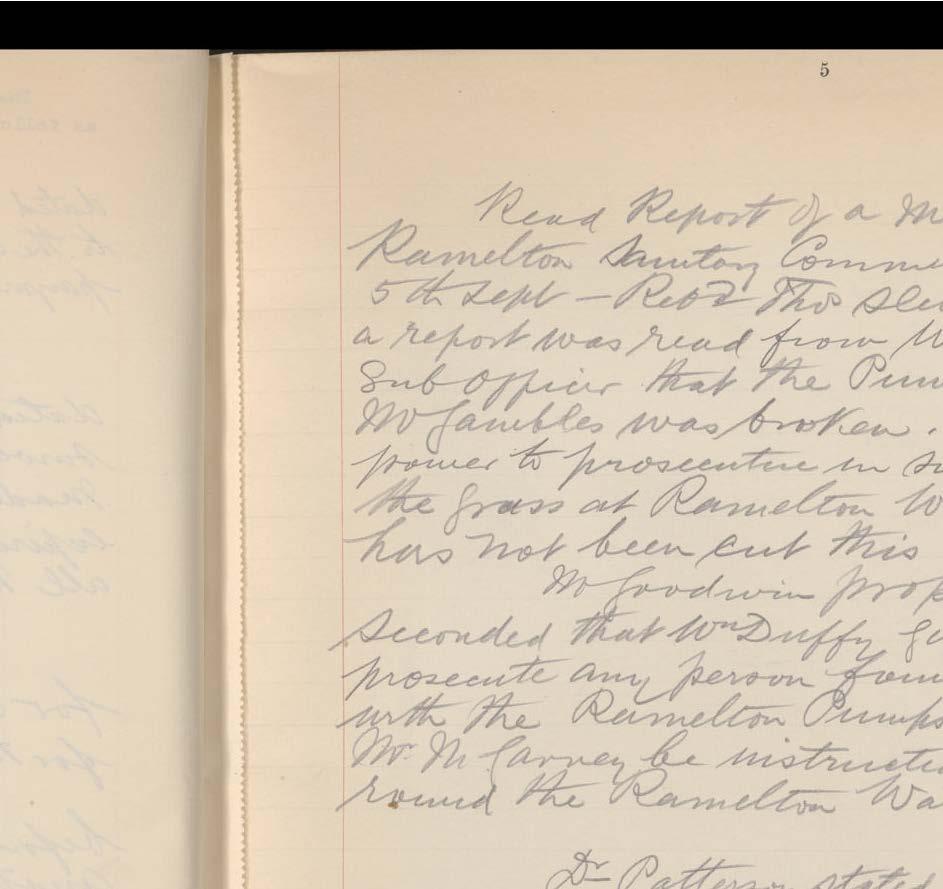 5
Read Report of a M
Ramelton Sanitary Comm
5th Sept – Thos
a report was read from W
Sub Officer that the Pum
Mr Gambles was broken.
power to prosecutin in su
the grass at Ramelton W
has not been cut this
Mr Goodwin prop
Seconded that Wm Duffy
prosecute any person foun
with the Ramelton Pumps
Mr. McGarvey be instructe
round the Ramelton Wa
Dr Patterson stated